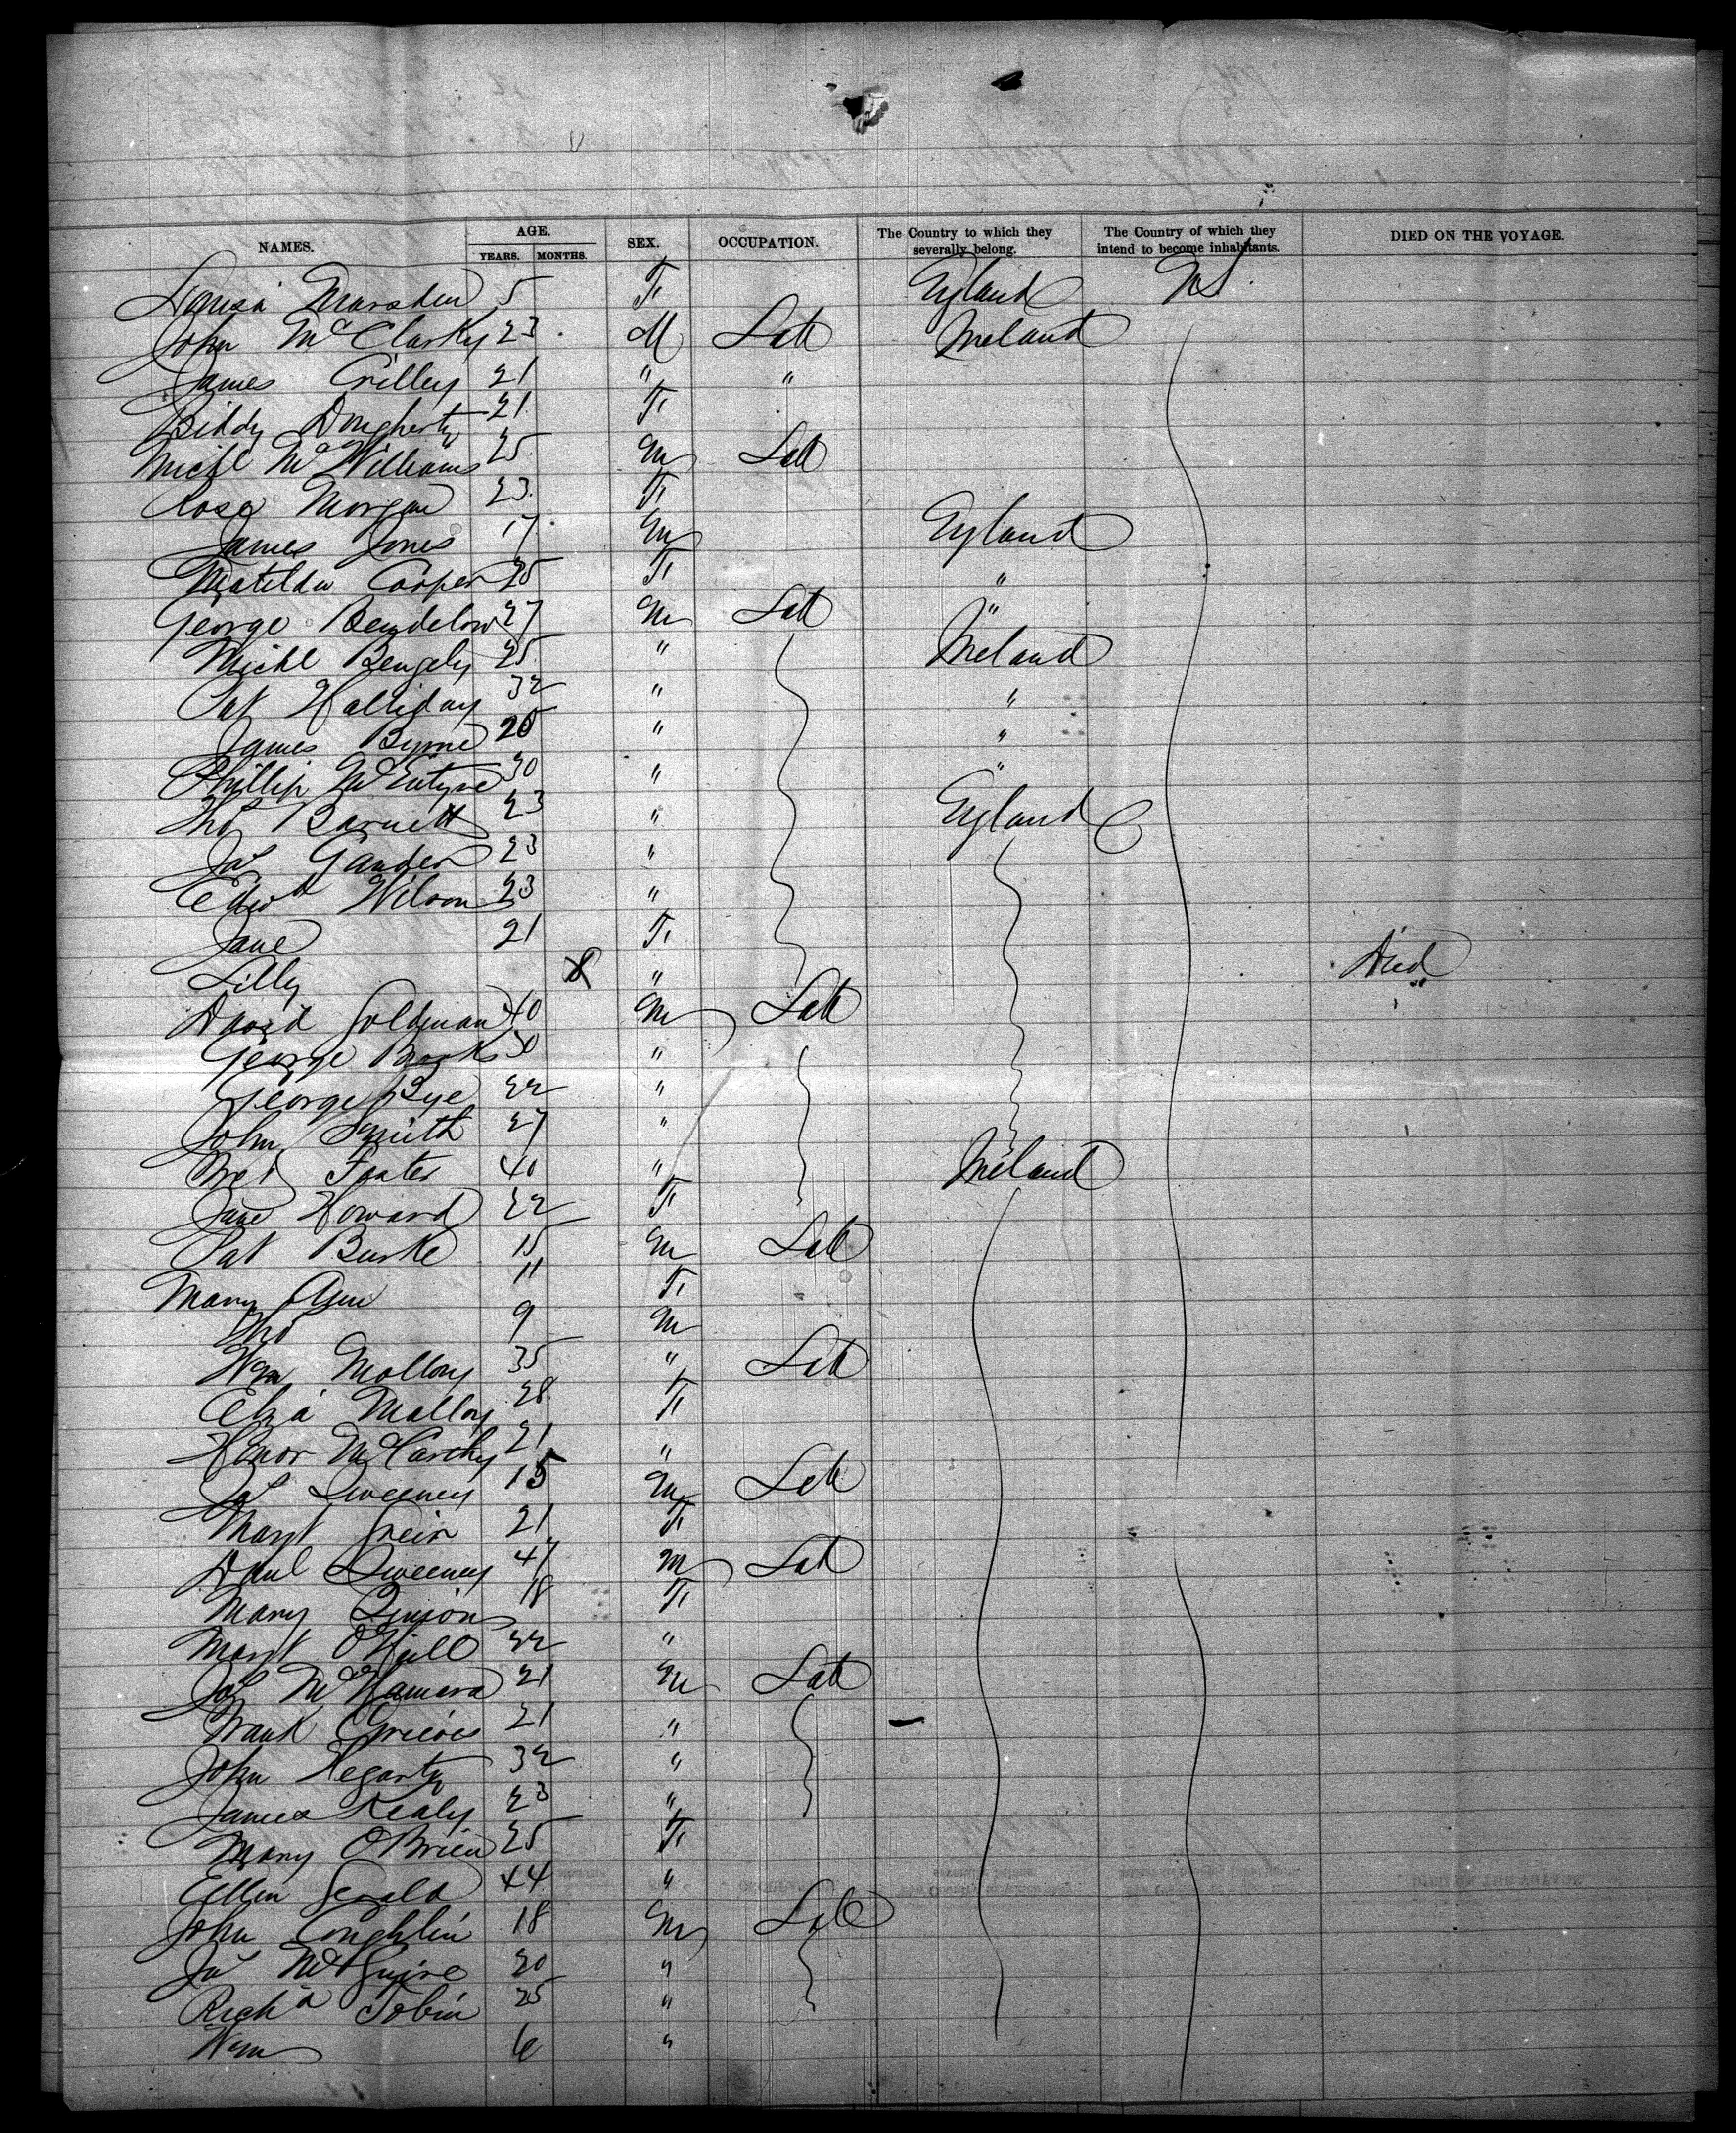 NAMES. AGE. YEARS. MONTHS. SEX. OCCUPATION. The Country to which they severally belong. The Country of which they intend to become inhabitants. DIED ON THE VOYAGE.
Louisa Marsden 5 F England U.S.
John McClusky 23 M Lab Ireland
James Crilley 21 " "
Biddy Dougherty 21 F
Michl McWilliams 25 m Lab
Rose Morgan 23 F
James Jones 17 m England
Matilda Cooper 25 F "
George Bendelow 27 m Lab "
Michl 25 " Ireland
Pat Halliday 32 " "
James Byrne 20 " "
Phillip McEntyre 30 " "
Tho Barnett 23 " England
Jas Gander 23 "
Edwd Wilson 23 "
Jane 21 F
Lilly " Died
David Goldman 40 m Lab
George Brooks 30 "
George Bye 22 "
John Smith 27 "
40 " Ireland
Jane Howard 22 F
Pat Burke 15 m Lab
Mary Ann 11 F
Tho 9 m
Wm Molloy 35 " Lab
Eliza Malloy 28 F
Honor McCarthy 21 "
Jas Sweeney 15 m Lab
Margt 21 F
Danl Sweeney 47 m Lab
Mary 18 F
Margt O'Neill 22 "
Jas McNamara 21 m Lab
Frank 21 "
John Hegarty 32 "
James Kealy 23 "
Mary O'Brien 25 F
Ellen Gerald 44 "
John Coughlin 18 m Lab
Jas McGuire 20 "
Richd Tobin 25 "
Wm 6 "